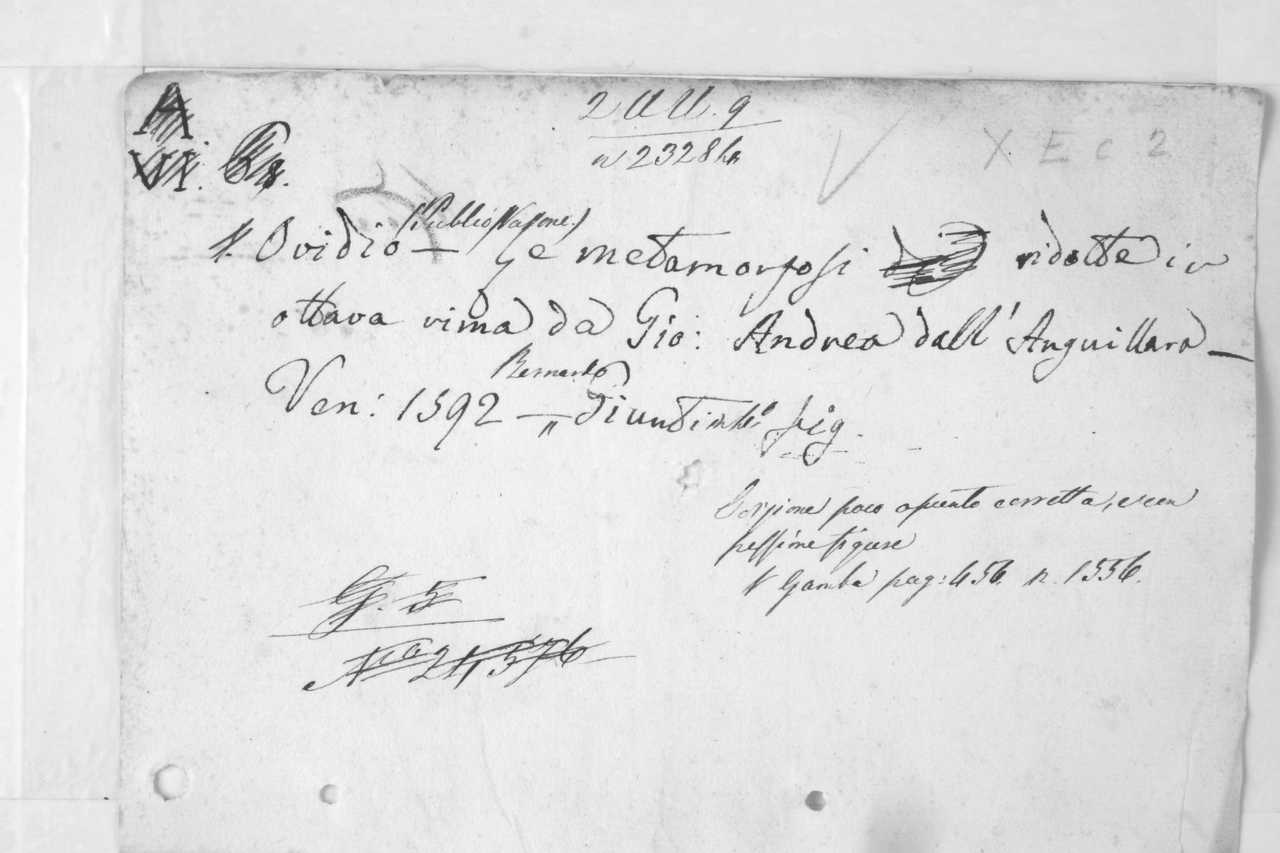 A
VI.
2 UU. 9
n 2328 bis
X E c 2
1. Ovidio (Publio Nasone) — Le metamorfosi ridotte in
ottava rima da Gio: Andrea dall' Anguillara —
Ven: 1592 — Bernardo Giunti in 4º fig.
poco corretta, e con
pessime figure
V Gamba pag: 456. n. 1556.
G. 5
Nro 21,576